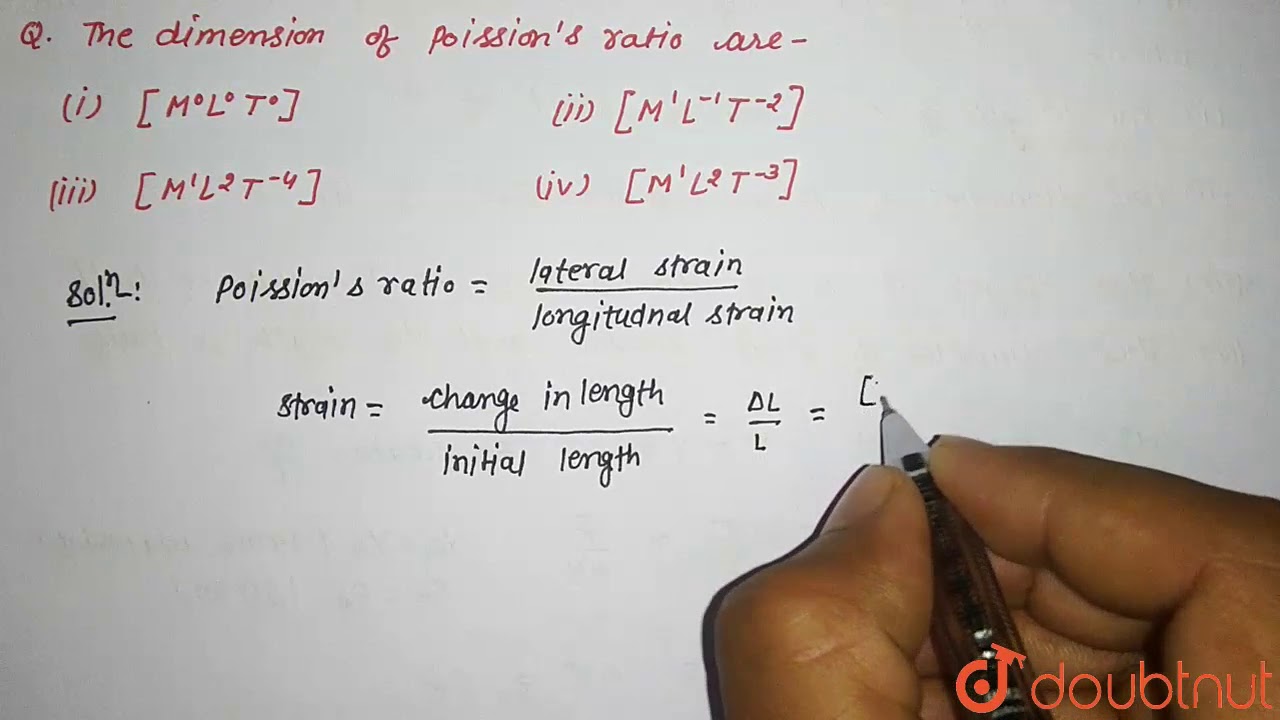 Q. The dimension of poission's ratio are-
(i) [M⁰L⁰T⁰] (ii) [M¹L⁻¹T⁻²]
(iii) [M¹L²T⁻⁴] (iv) [M¹L²T⁻³]
Solⁿ: poission's ratio = lateral strain
longitudnal strain
strain = change in length = ΔL = [
initial length L
doubtnut